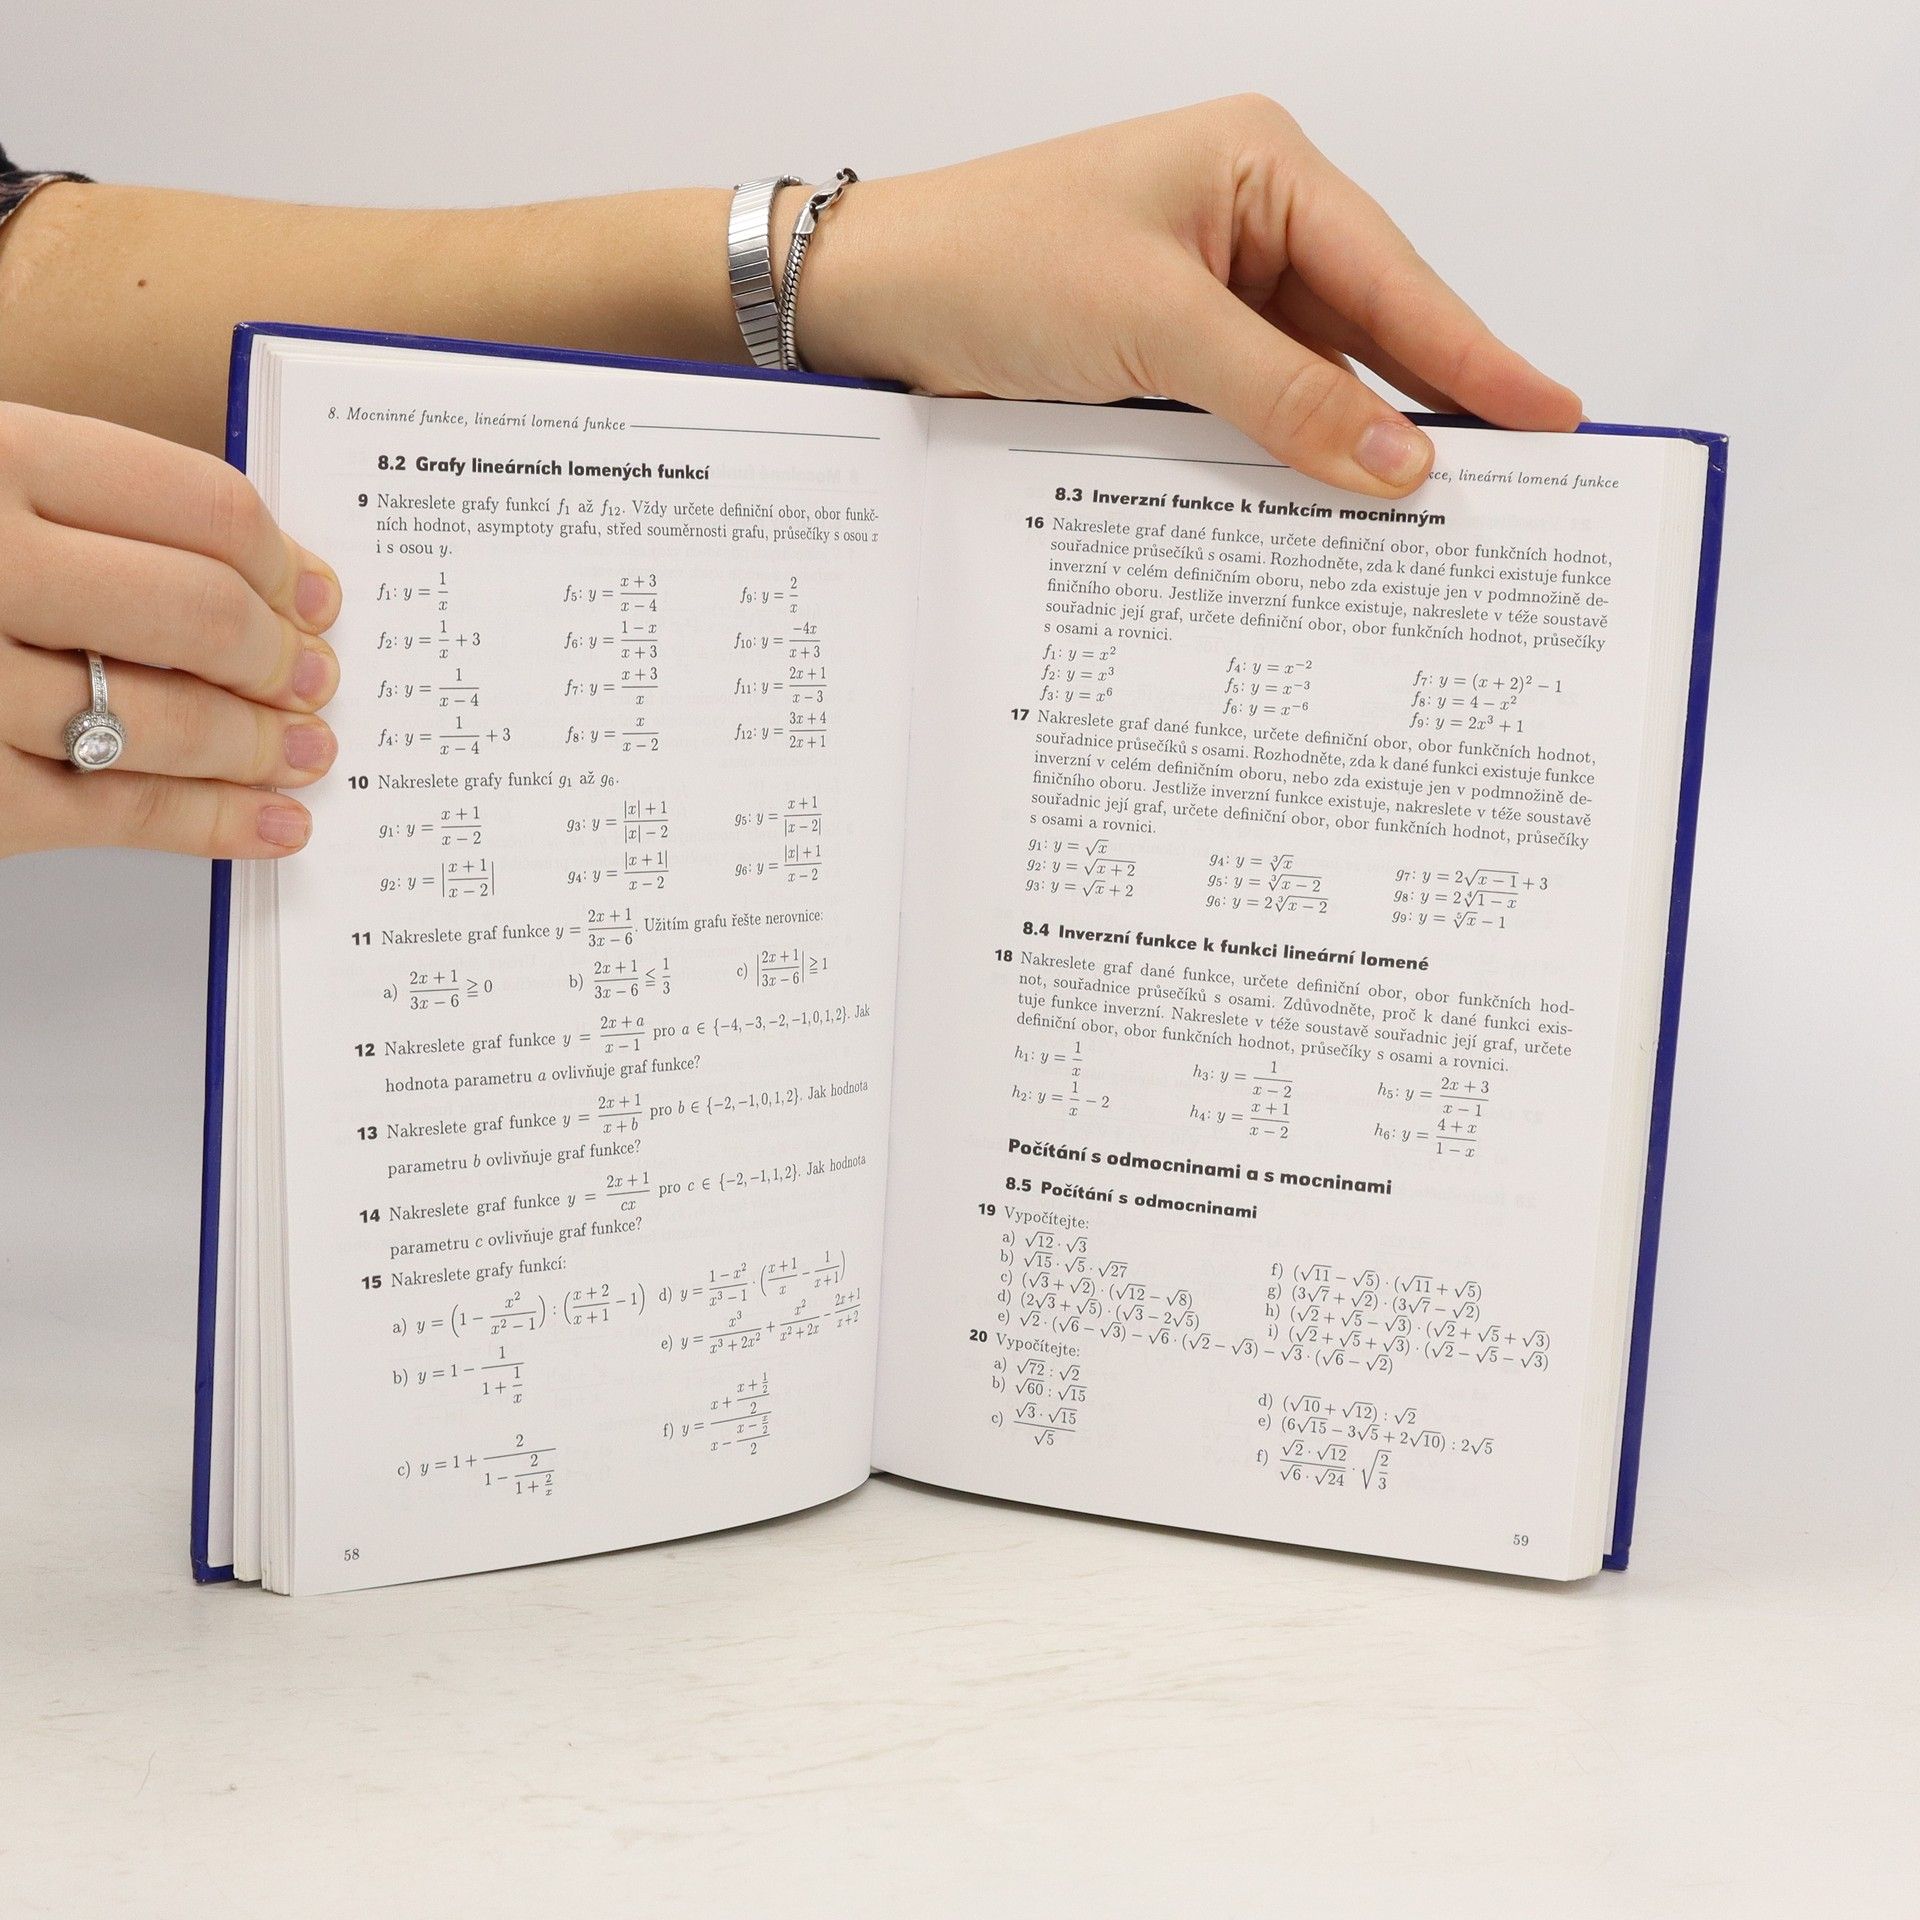 8. Mocninné funkce, lineární lomená funkce
8.2 Grafy lineárních lomených funkcí
9 Nakreslete grafy funkcí f₁ až f₁₂. Vždy určete definiční obor, obor funkč-
ních hodnot, asymptoty grafu, střed souměrnosti grafu, průsečíky s osou x
i s osou y.
f₁: y = 1/x f₅: y = (x + 3)/(x − 4) f₉: y = 2/x
f₂: y = 1/x + 3 f₆: y = (1 − x)/(x + 3) f₁₀: y = −4x/(x + 3)
f₃: y = 1/(x − 4) f₇: y = (x + 3)/x f₁₁: y = (2x + 1)/(x − 3)
f₄: y = 1/(x − 4) + 3 f₈: y = x/(x − 2) f₁₂: y = (3x + 4)/(2x + 1)
10 Nakreslete grafy funkcí g₁ až g₆.
g₁: y = (x + 1)/(x − 2) g₃: y = (|x| + 1)/(|x| − 2) g₅: y = (x + 1)/|x − 2|
g₂: y = |(x + 1)/(x − 2)| g₄: y = |x + 1|/(x − 2) g₆: y = (|x| + 1)/(x − 2)
11 Nakreslete graf funkce y = (2x + 1)/(3x − 6). Užitím grafu řešte nerovnice:
a) (2x + 1)/(3x − 6) ≧ 0 b) (2x + 1)/(3x − 6) ≦ 1/3 c) |(2x + 1)/(3x − 6)| ≧ 1
12 Nakreslete graf funkce y = (2x + a)/(x − 1) pro a ∈ {−4, −3, −2, −1, 0, 1, 2}. Jak
hodnota parametru a ovlivňuje graf funkce?
13 Nakreslete graf funkce y = (2x + 1)/(x + b) pro b ∈ {−2, −1, 0, 1, 2}. Jak hodnota
parametru b ovlivňuje graf funkce?
14 Nakreslete graf funkce y = (2x + 1)/(cx) pro c ∈ {−2, −1, 1, 2}. Jak hodnota
parametru c ovlivňuje graf funkce?
15 Nakreslete grafy funkcí:
a) y = (1 − x²/(x² − 1)) : ((x + 2)/(x + 1) − 1) d) y = (1 − x²)/(x³ − 1) · ((x + 1)/x − 1/(x + 1))
e) y = x³/(x³ + 2x²) + x²/(x² + 2x) − (2x + 1)/(x + 2)
b) y = 1 − 1/(1 + 1/x)
f) y = (x + (x + 1/2)/2)/(x − (x − x/2)/2)
c) y = 1 + 2/(1 − 2/(1 + 2/x))
58
kce, lineární lomená funkce
8.3 Inverzní funkce k funkcím mocninným
16 Nakreslete graf dané funkce, určete definiční obor, obor funkčních hodnot,
souřadnice průsečíků s osami. Rozhodněte, zda k dané funkci existuje funkce
inverzní v celém definičním oboru, nebo zda existuje jen v podmnožině de-
finičního oboru. Jestliže inverzní funkce existuje, nakreslete v téže soustavě
souřadnic její graf, určete definiční obor, obor funkčních hodnot, průsečíky
s osami a rovnici.
f₁: y = x² f₄: y = x⁻² f₇: y = (x + 2)² − 1
f₂: y = x³ f₅: y = x⁻³ f₈: y = 4 − x²
f₃: y = x⁶ f₆: y = x⁻⁶ f₉: y = 2x³ + 1
17 Nakreslete graf dané funkce, určete definiční obor, obor funkčních hodnot,
souřadnice průsečíků s osami. Rozhodněte, zda k dané funkci existuje funkce
inverzní v celém definičním oboru, nebo zda existuje jen v podmnožině de-
finičního oboru. Jestliže inverzní funkce existuje, nakreslete v téže soustavě
souřadnic její graf, určete definiční obor, obor funkčních hodnot, průsečíky
s osami a rovnici.
g₁: y = √x g₄: y = ∛x g₇: y = 2√(x − 1) + 3
g₂: y = √(x + 2) g₅: y = ∛(x − 2) g₈: y = 2∜(1 − x)
g₃: y = √x + 2 g₆: y = 2∛(x − 2) g₉: y = ⁵√x − 1
8.4 Inverzní funkce k funkci lineární lomené
18 Nakreslete graf dané funkce, určete definiční obor, obor funkčních hod-
not, souřadnice průsečíků s osami. Zdůvodněte, proč k dané funkci exis-
tuje funkce inverzní. Nakreslete v téže soustavě souřadnic její graf, určete
definiční obor, obor funkčních hodnot, průsečíky s osami a rovnici.
h₁: y = 1/x h₃: y = 1/(x − 2) h₅: y = (2x + 3)/(x − 1)
h₂: y = 1/x − 2 h₄: y = (x + 1)/(x − 2) h₆: y = (4 + x)/(1 − x)
Počítání s odmocninami a s mocninami
8.5 Počítání s odmocninami
19 Vypočítejte:
a) √12 · √3
b) √15 · √5 · √27 f) (√11 − √5) · (√11 + √5)
c) (√3 + √2) · (√12 − √8) g) (3√7 + √2) · (3√7 − √2)
d) (2√3 + √5) · (√3 − 2√5) h) (√2 + √5 − √3) · (√2 + √5 + √3)
e) √2 · (√6 − √3) − √6 · (√2 − √3) − √3 · (√6 − √2) i) (√2 + √5 + √3) · (√2 − √5 − √3)
20 Vypočítejte:
a) √72 : √2
b) √60 : √15 d) (√10 + √12) : √2
c) (√3 · √15)/√5 e) (6√15 − 3√5 + 2√10) : 2√5
f) (√2 · √12)/(√6 · √24) · √(2/3)
59